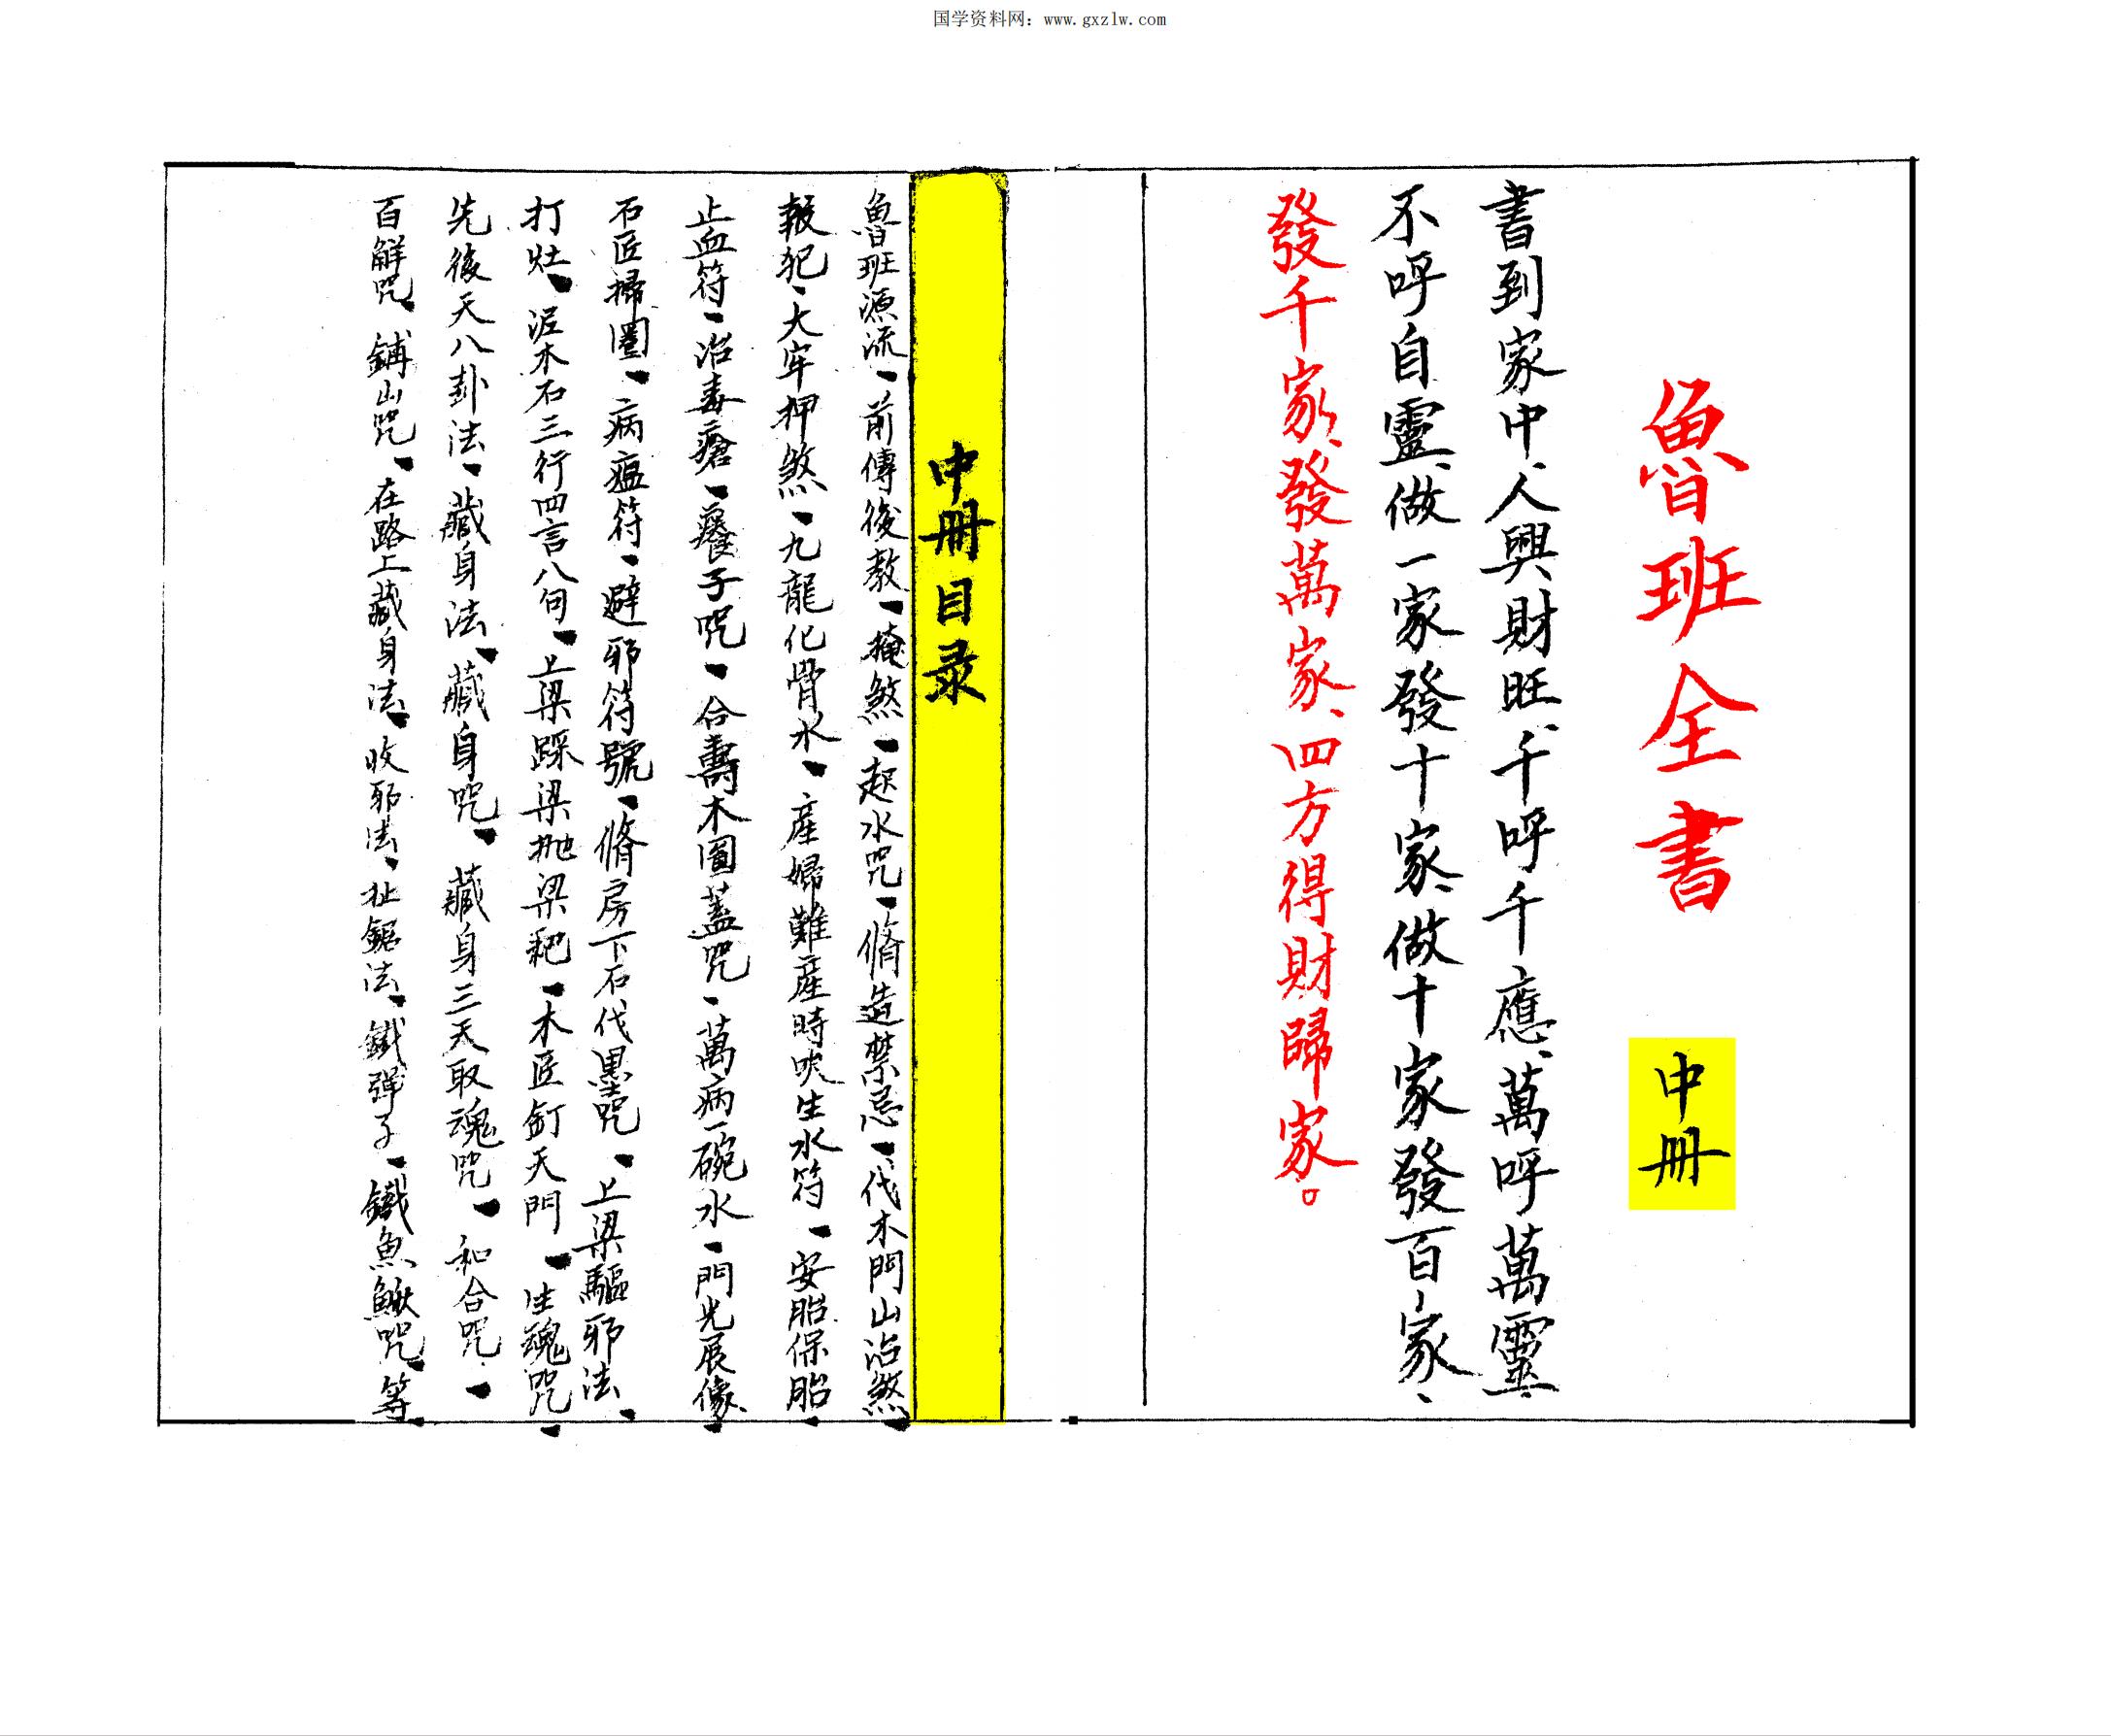 国学资料网：www.gxzlw.com
魯班全書
中冊
書到家中、人興財旺、千呼千應、萬呼萬靈、
不呼自靈、做一家發十家、做十家發百家、
發千家、發萬家、四方得財歸家。
中冊目录
魯班源流、前傳後教、掩煞、起水咒、脩造禁忌、伐木門山治煞、
報犯、大牢押煞、九龍化骨水、産婦難産時吹生水符、安胎保胎、
止血符、治毒瘡、癢子咒、合壽木圓蓋咒、萬病一碗水、門光展像、
石匠掃圈、病瘟符、避邪符號、脩房下石代墨咒、上梁驅邪法、
打灶、泥木石三行四言八句、上梁踩梁拋梁粑、木匠釘天門、生魂咒、
先後天八卦法、藏身法、藏身咒、藏身三天取魂咒、和合咒、
百解咒、鋪山咒、在路上藏身法、收邪法、扯鋸法、鐵彈子、鐵魚鰍咒、等、